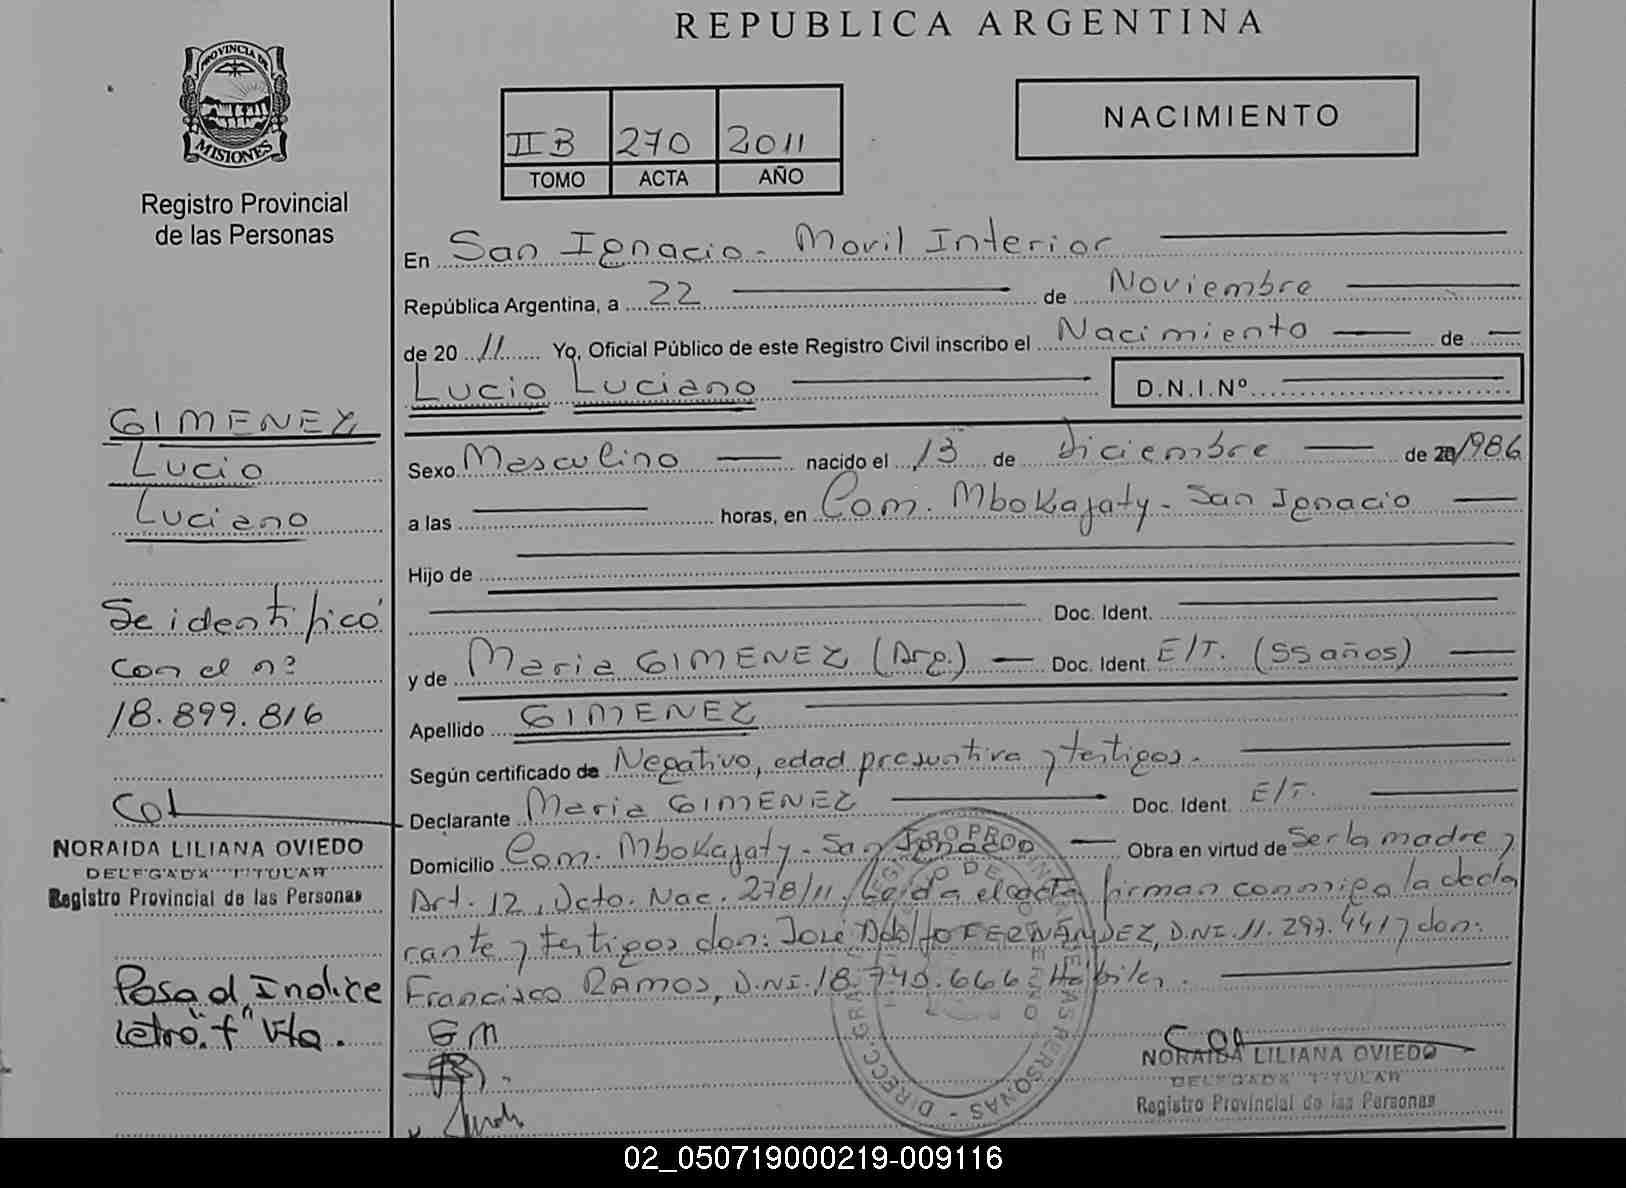 REPUBLICA ARGENTINA
PROVINCIA DE
MISIONES
Registro Provincial
de las Personas
IIB 270 2011
TOMO ACTA AÑO
NACIMIENTO
En San Ignacio - Movil Interior
República Argentina, a 22 de Noviembre
de 20 11 Yo, Oficial Público de este Registro Civil inscribo el Nacimiento de
Lucio Luciano D.N.I.Nº
GIMENEZ
Lucio
Luciano
Sexo Masculino nacido el 13 de diciembre de 20 1986
a las horas, en Com. Mbokajaty - San Ignacio
Hijo de
Doc. Ident.
Se identificó
con el nº
18.899.816
y de Maria GIMENEZ (Arg.) Doc. Ident. E/T. (55 años)
Apellido GIMENEZ
Según certificado de Negativo, edad presuntiva y testigos.
Declarante Maria GIMENEZ Doc. Ident. E/T.
Domicilio Com. Mbokajaty - San Ignacio Obra en virtud de Ser la madre y
Art. 12, Dcto. Nac. 278/11. Leída el acta firman conmigo la decla
rante y testigos don: José Adolfo FERNÁNDEZ, D.NI. 11.297.441 y don:
Francisco RAMOS, D.NI. 18.740.666 Hábiles.
NORAIDA LILIANA OVIEDO
DELEGADA TITULAR
Registro Provincial de las Personas
Pasa al Indice
letra "f" Vta.
GM
NORAIDA LILIANA OVIEDO
DELEGADA TITULAR
Registro Provincial de las Personas
02_050719000219-009116